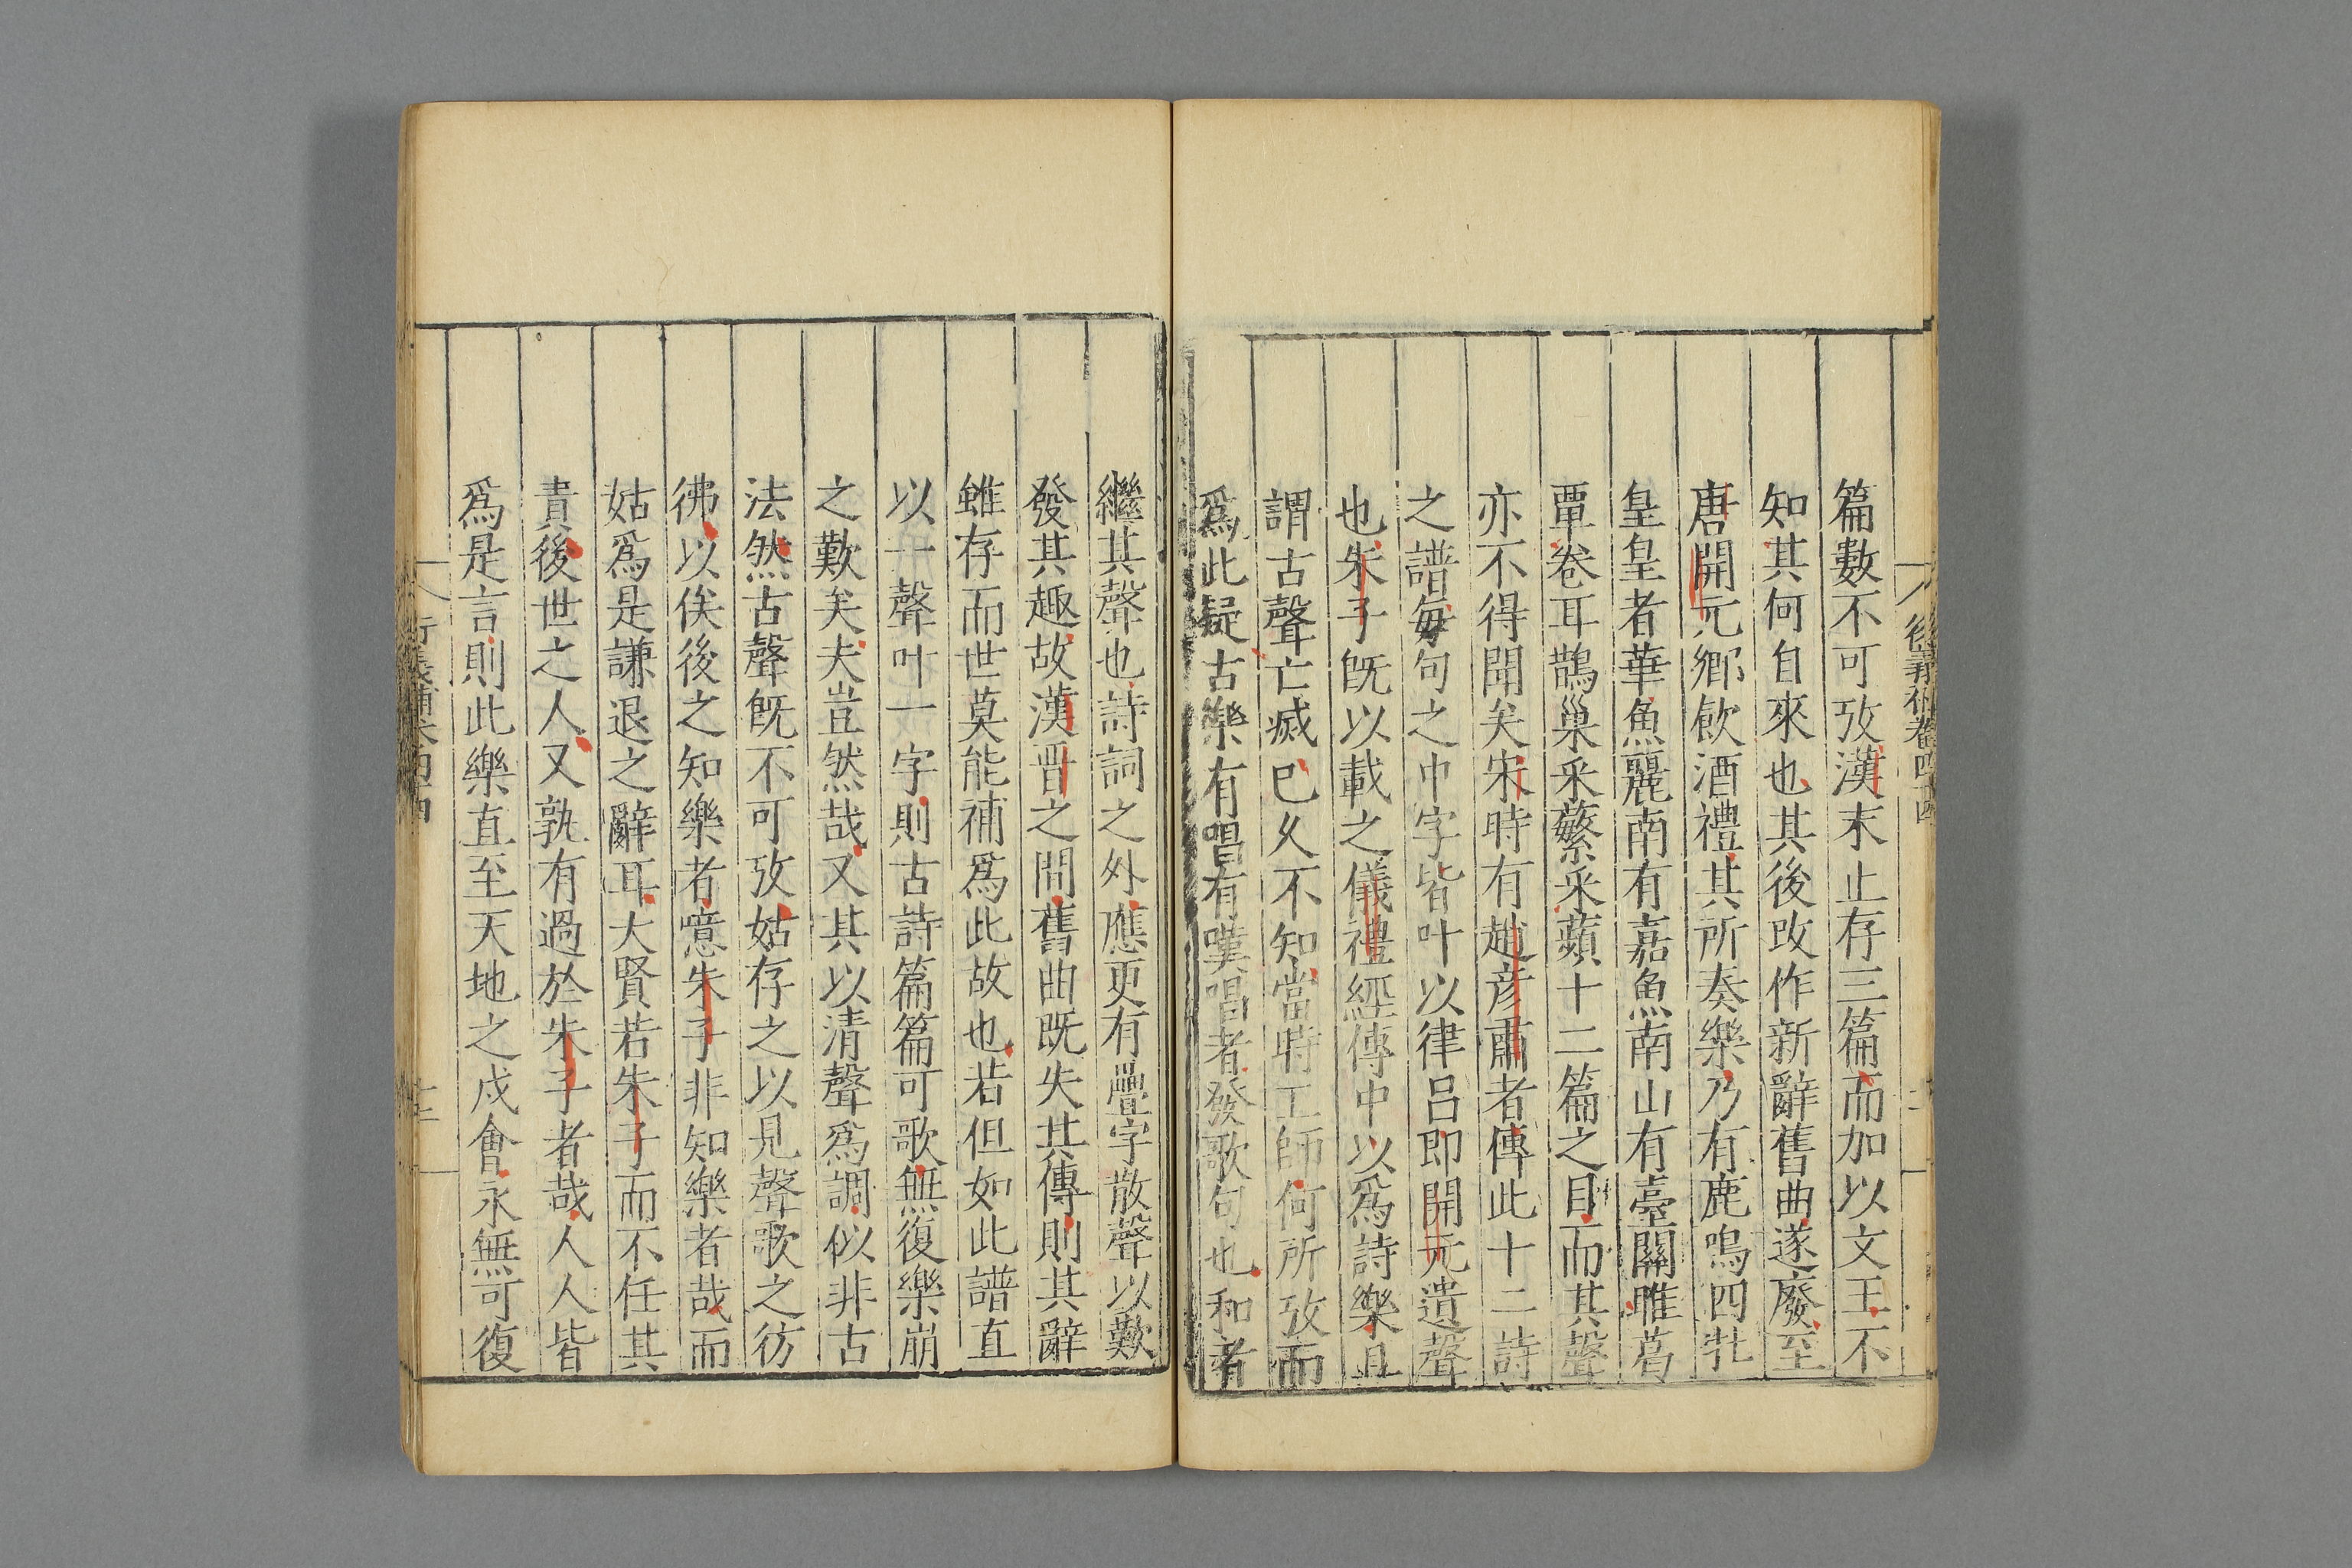 篇數不可攷漢末止存三篇而加以文王不
知其何自來也其後改作新辭舊曲遂廢至
唐開元鄉飲酒禮其所奏樂乃有鹿鳴四牡
皇皇者華魚麗南有嘉魚南山有臺關雎葛
覃卷耳鵲巢采蘩采蘋十二篇之目而其聲
亦不得聞矣宋時有趙彥肅者傳此十二詩
之譜每句之中字皆叶以律呂即開元遺聲
也朱子旣以載之儀禮經傳中以爲詩樂且
謂古聲亡滅已久不知當時工師何所攷而
爲此疑古樂有唱有嘆唱者發歌句也和者
繼其聲也詩詞之外應更有疊字散聲以歎
發其趣故漢晉之間舊曲既失其傳則其辭
雖存而世莫能補爲此故也若但如此譜直
以一聲叶一字則古詩篇篇可歌無復樂崩
之歎矣夫豈然哉又其以清聲爲調似非古
法然古聲旣不可攷姑存之以見聲歌之彷
彿以俟後之知樂者噫朱子非知樂者哉而
姑爲是謙退之辭耳大賢若朱子而不任其
責後世之人又孰有過於朱子者哉人人皆
爲是言則此樂直至天地之戍會永無可復